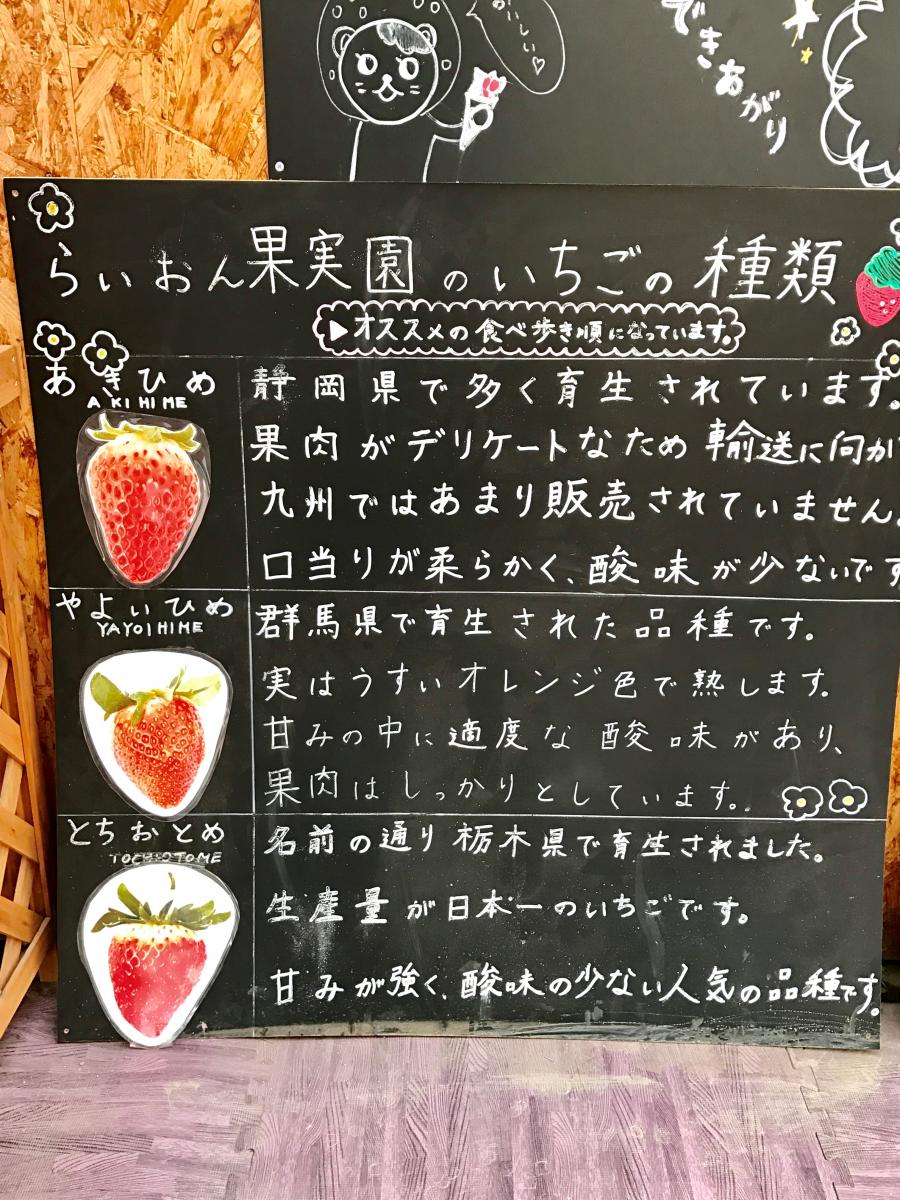 おいしい♡
できあがり
らいおん果実園のいちごの種類
▶オススメの食べ歩き順になっています。
あきひめ
AKIHIME
静岡県で多く育生されています。
果肉がデリケートなため輸送に向か
九州ではあまり販売されていません。
口当りが柔らかく、酸味が少ないです
やよいひめ
YAYOIHIME
群馬県で育生された品種です。
実はうすいオレンジ色で熟します。
甘みの中に適度な酸味があり、
果肉はしっかりとしています。
とちおとめ
TOCHIOTOME
名前の通り栃木県で育生されました。
生産量が日本一のいちごです。
甘みが強く、酸味の少ない人気の品種です。